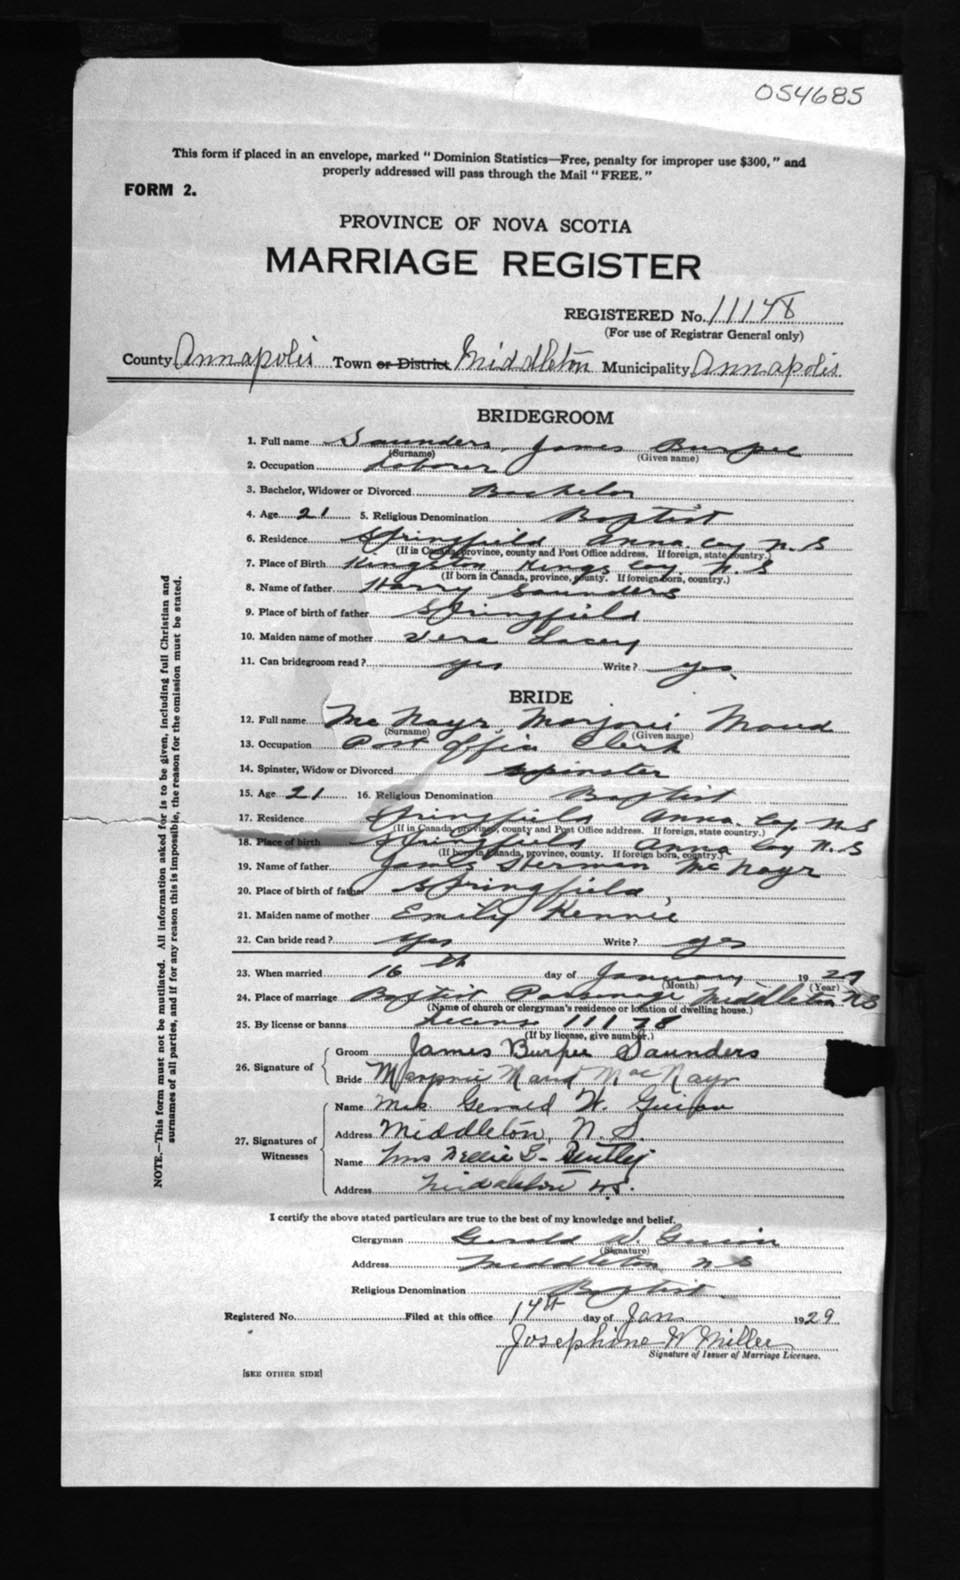 054685
This form if placed in an envelope, marked "Dominion Statistics—Free, penalty for improper use $300," and
properly addressed will pass through the Mail "FREE."
FORM 2.
PROVINCE OF NOVA SCOTIA
MARRIAGE REGISTER
REGISTERED No. 11148
(For use of Registrar General only)
County Annapolis Town or District Middleton Municipality Annapolis
BRIDEGROOM
1. Full name Saunders, James Burpee
(Surname) (Given name)
2. Occupation Laborer
3. Bachelor, Widower or Divorced Bachelor
4. Age 21 5. Religious Denomination Baptist
6. Residence Springfield Anna. Coy N.S
(If in Canada, province, county and Post Office address. If foreign, state country.)
7. Place of Birth Kingston Kings Coy. N.S
(If born in Canada, province, county. If foreign born, country.)
8. Name of father Harry Saunders
9. Place of birth of father Springfield
10. Maiden name of mother Vera Lacey
11. Can bridegroom read? yes Write? yes
BRIDE
12. Full name McNayr, Marjorie Maud
(Surname) (Given name)
13. Occupation Post Office Clerk
14. Spinster, Widow or Divorced Spinster
15. Age 21 16. Religious Denomination Baptist
17. Residence Springfield Anna. Coy. N.S
(If in Canada, province, county and Post Office address. If foreign, state country.)
18. Place of birth Springfield Anna Coy N.S
(If born in Canada, province, county. If foreign born, country.)
19. Name of father James Herman McNayr
20. Place of birth of father Springfield
21. Maiden name of mother Emily
22. Can bride read? yes Write? yes
23. When married 16th day of January 1929
(Month) (Year)
24. Place of marriage Baptist Parsonage Middleton N.S
(Name of church or clergyman's residence or location of dwelling house.)
25. By license or banns License 11178
(If by license, give number.)
26. Signature of Groom James Burpee Saunders
Bride Marjorie Maud MacNayr
27. Signatures of Witnesses
Name Mrs Gerald W. Guiou
Address Middleton, N.S.
Name Mrs Nellie G.
Address Middleton N.S.
I certify the above stated particulars are true to the best of my knowledge and belief.
Clergyman Gerald W. Guiou
(Signature)
Address Middleton N.S
Religious Denomination Baptist
Registered No. Filed at this office 14th day of Jan 1929
Josephine W Miller
Signature of Issuer of Marriage Licenses.
[SEE OTHER SIDE]
NOTE.—This form must not be mutilated. All information asked for is to be given, including full Christian and
surnames of all parties, and if for any reason this is impossible, the reason for the omission must be stated.